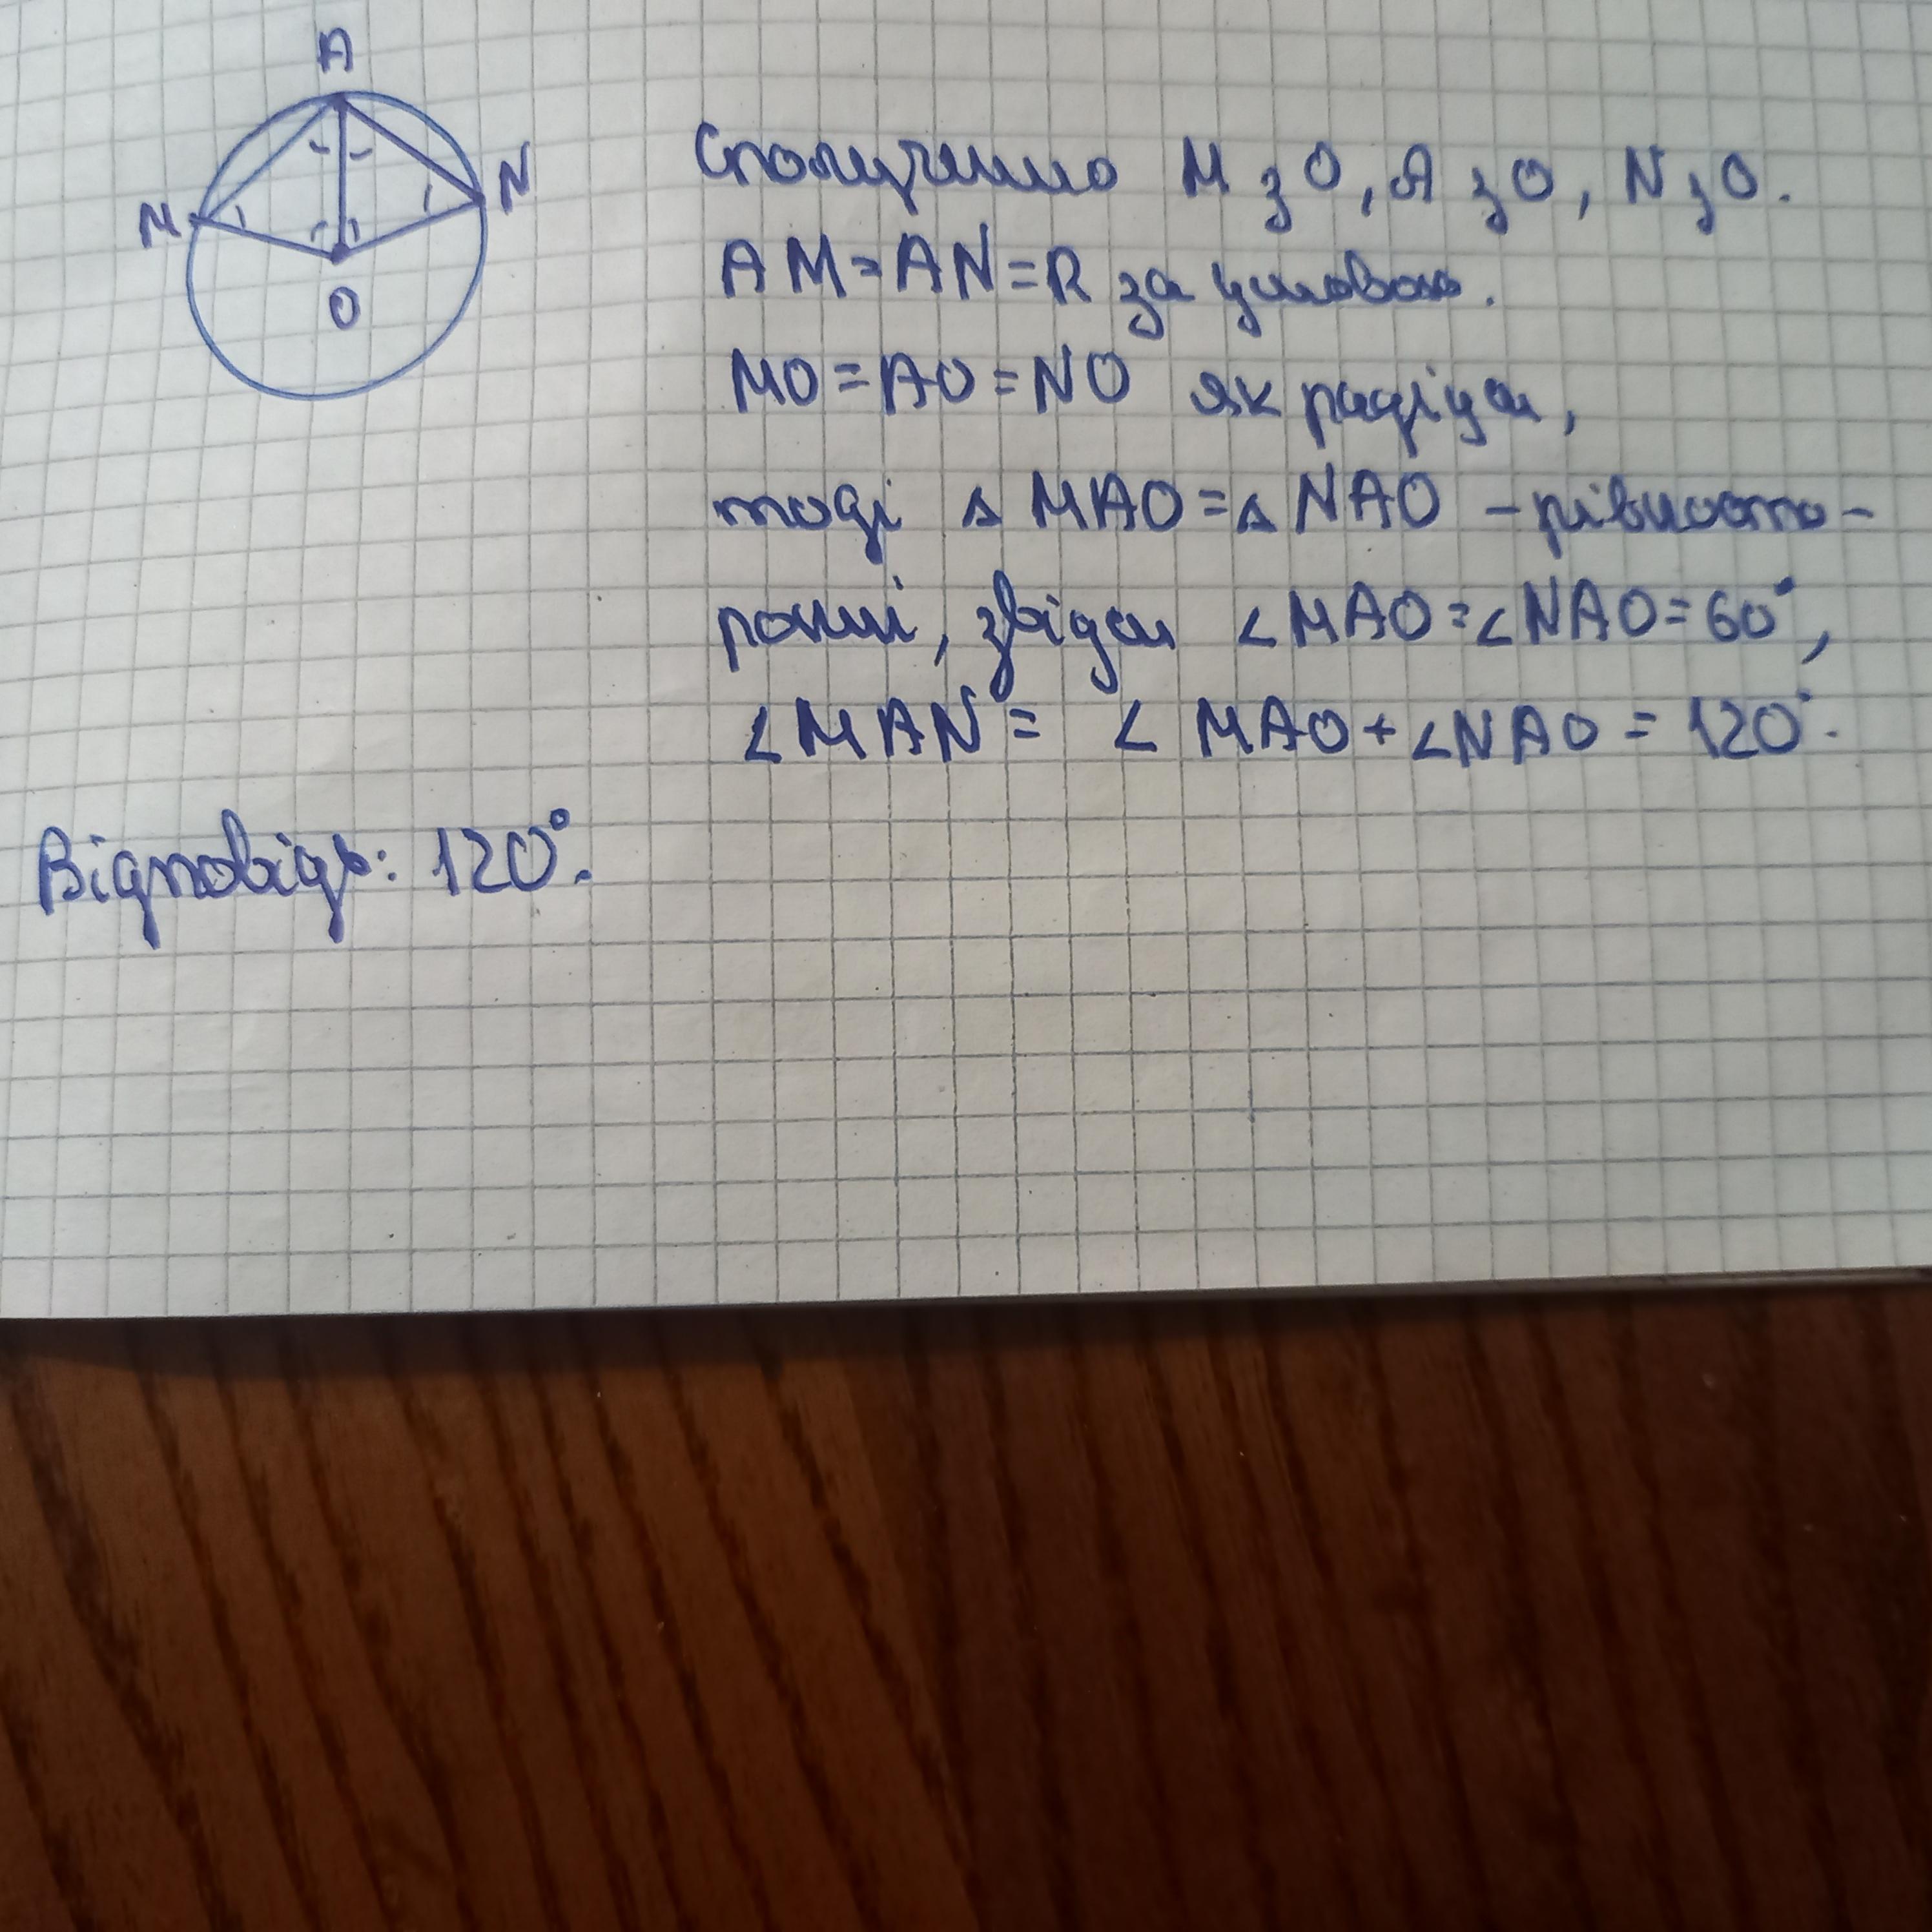 A
M
N
O
Сполучимо M з O, A з O, N з O.
AM = AN = R за умовою.
MO = AO = NO як радіуси,
тоді △ MAO = △ NAO - рівносто-
ронні, звідси ∠MAO = ∠NAO = 60°,
∠MAN = ∠MAO + ∠NAO = 120°.
Відповідь: 120°.